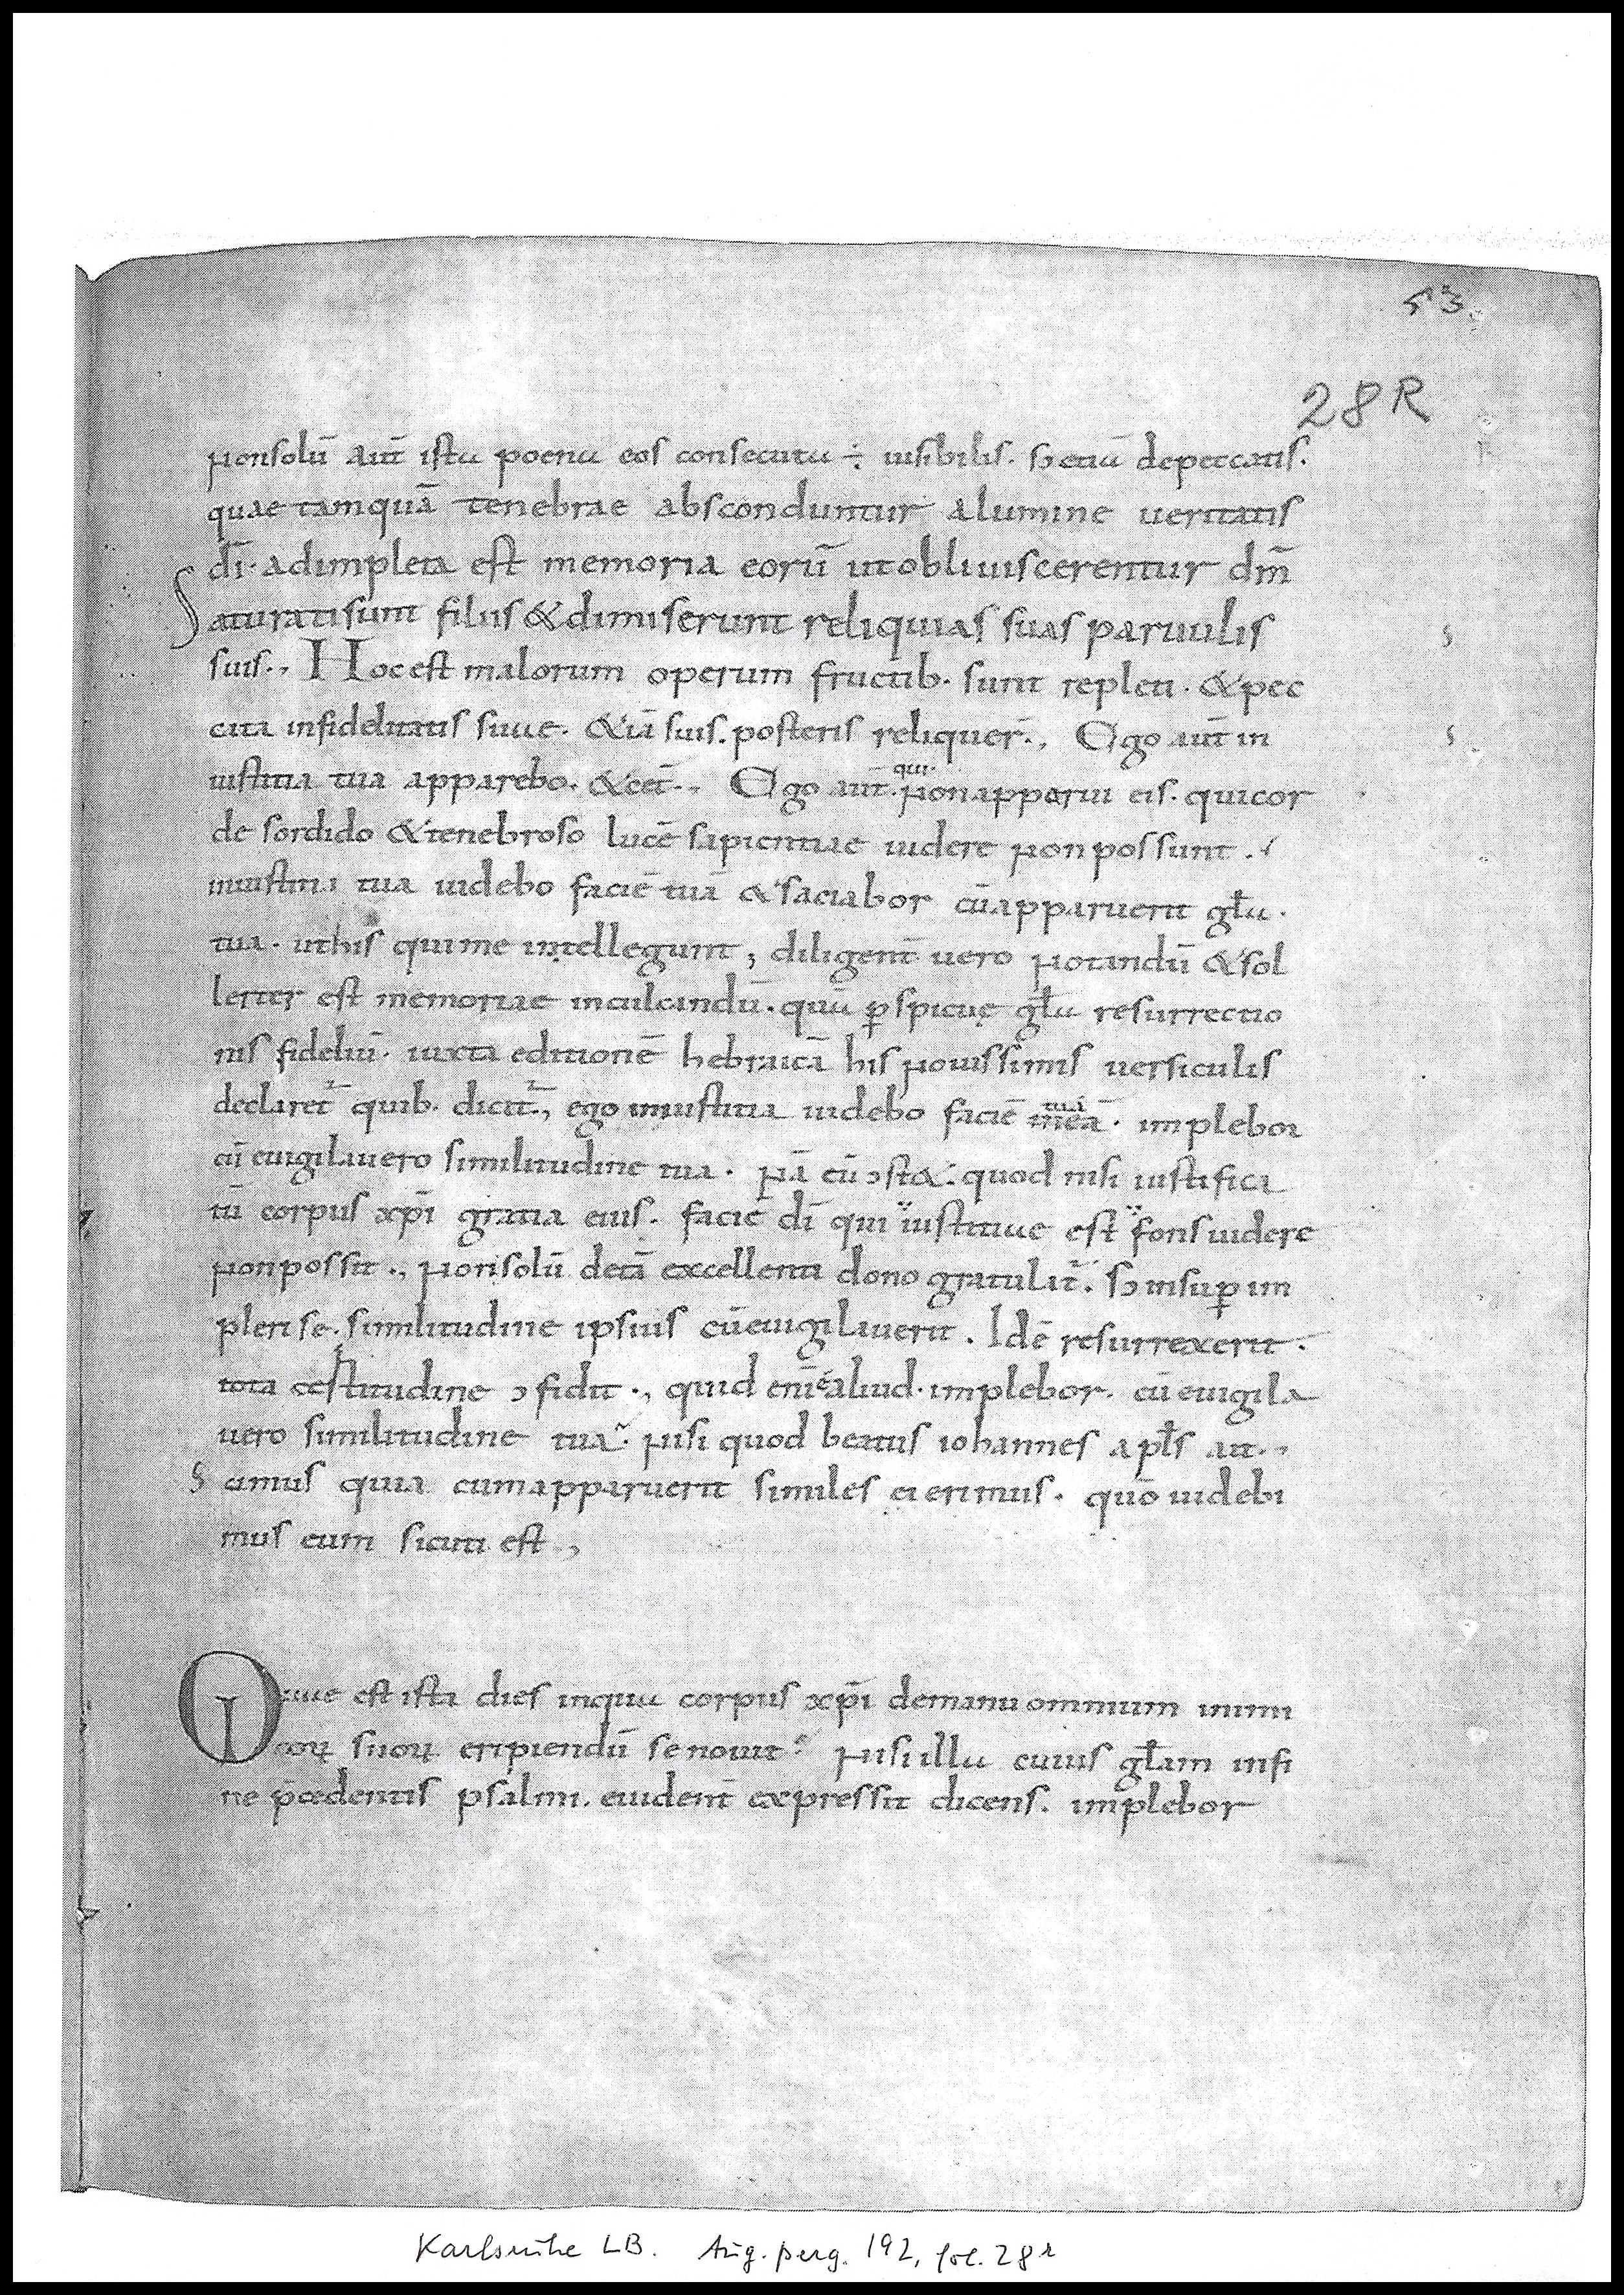 53.
28 R
nonsolū aut̄ ista poena eos consecuta ÷ inuisibilis. sꝫ etiā depeccatis.
quae tamquā tenebrae absconduntur alumine ueritatis
dī. adimpleta est memoria eorū utobliuiscerentur dm̄
Saturatisunt filiis &dimiserunt reliquias suas paruulis
suis., Hocest malorum operum fructib. sunt repleti. &pec
cata infidelitatis suae. &iā suis. posteris reliquer̄., Ego aut̄ in
iustitia tua apparebo. &cet̄., Ego aut̄. qui. nonapparui eis. quicor
de sordido &tenebroso lucē sapientiae uidere nonpossunt.
iniustitia tua uidebo faciē tuā &saciabor cū apparuerit gła.
tua. uthis quime intellegunt; diligent̄ uero notandū &sol
lerter est memoriae inculcandū. quā ꝑspicuę gła resurrectio
nis fideliū. iuxta editionē hebraicā his nouissimis uersiculis
declaret̄ quib. dicit̄., ego iniustitia uidebo faciē meā tuā. implebor
cū euigilauero similitudine tua. nā cū ɔsta&. quod nisi iustifica
tū corpus xp̄i gratia eius. faciē dī qui iustitiae est fons uidere
nonpossit., nonsolū detā excellenti dono gratulat̄. sꝫ insuꝑ im
pleri se. similitudine ipsius cū euigilauerit. Idē resurrexerit.
tota certitudine ɔfidit., quid enī ē aliud. implebor. cū euigila
uero similitudine tua. nisi quod beatus iohannes apłs ait.,
scimus quia cumapparuerit similes ei erimus. quō uidebi
mus eum sicuti est.,
Quae est ista dies inqua corpus xp̄i demanu omnium inimi
coꝝ suoꝝ eripiendū se nouit. nisi illa cuius głam infi
ne p̄cedentis psalmi. euident̄ expressit dicens. implebor
Karlsruhe LB. Aug. perg. 192, fol. 28r